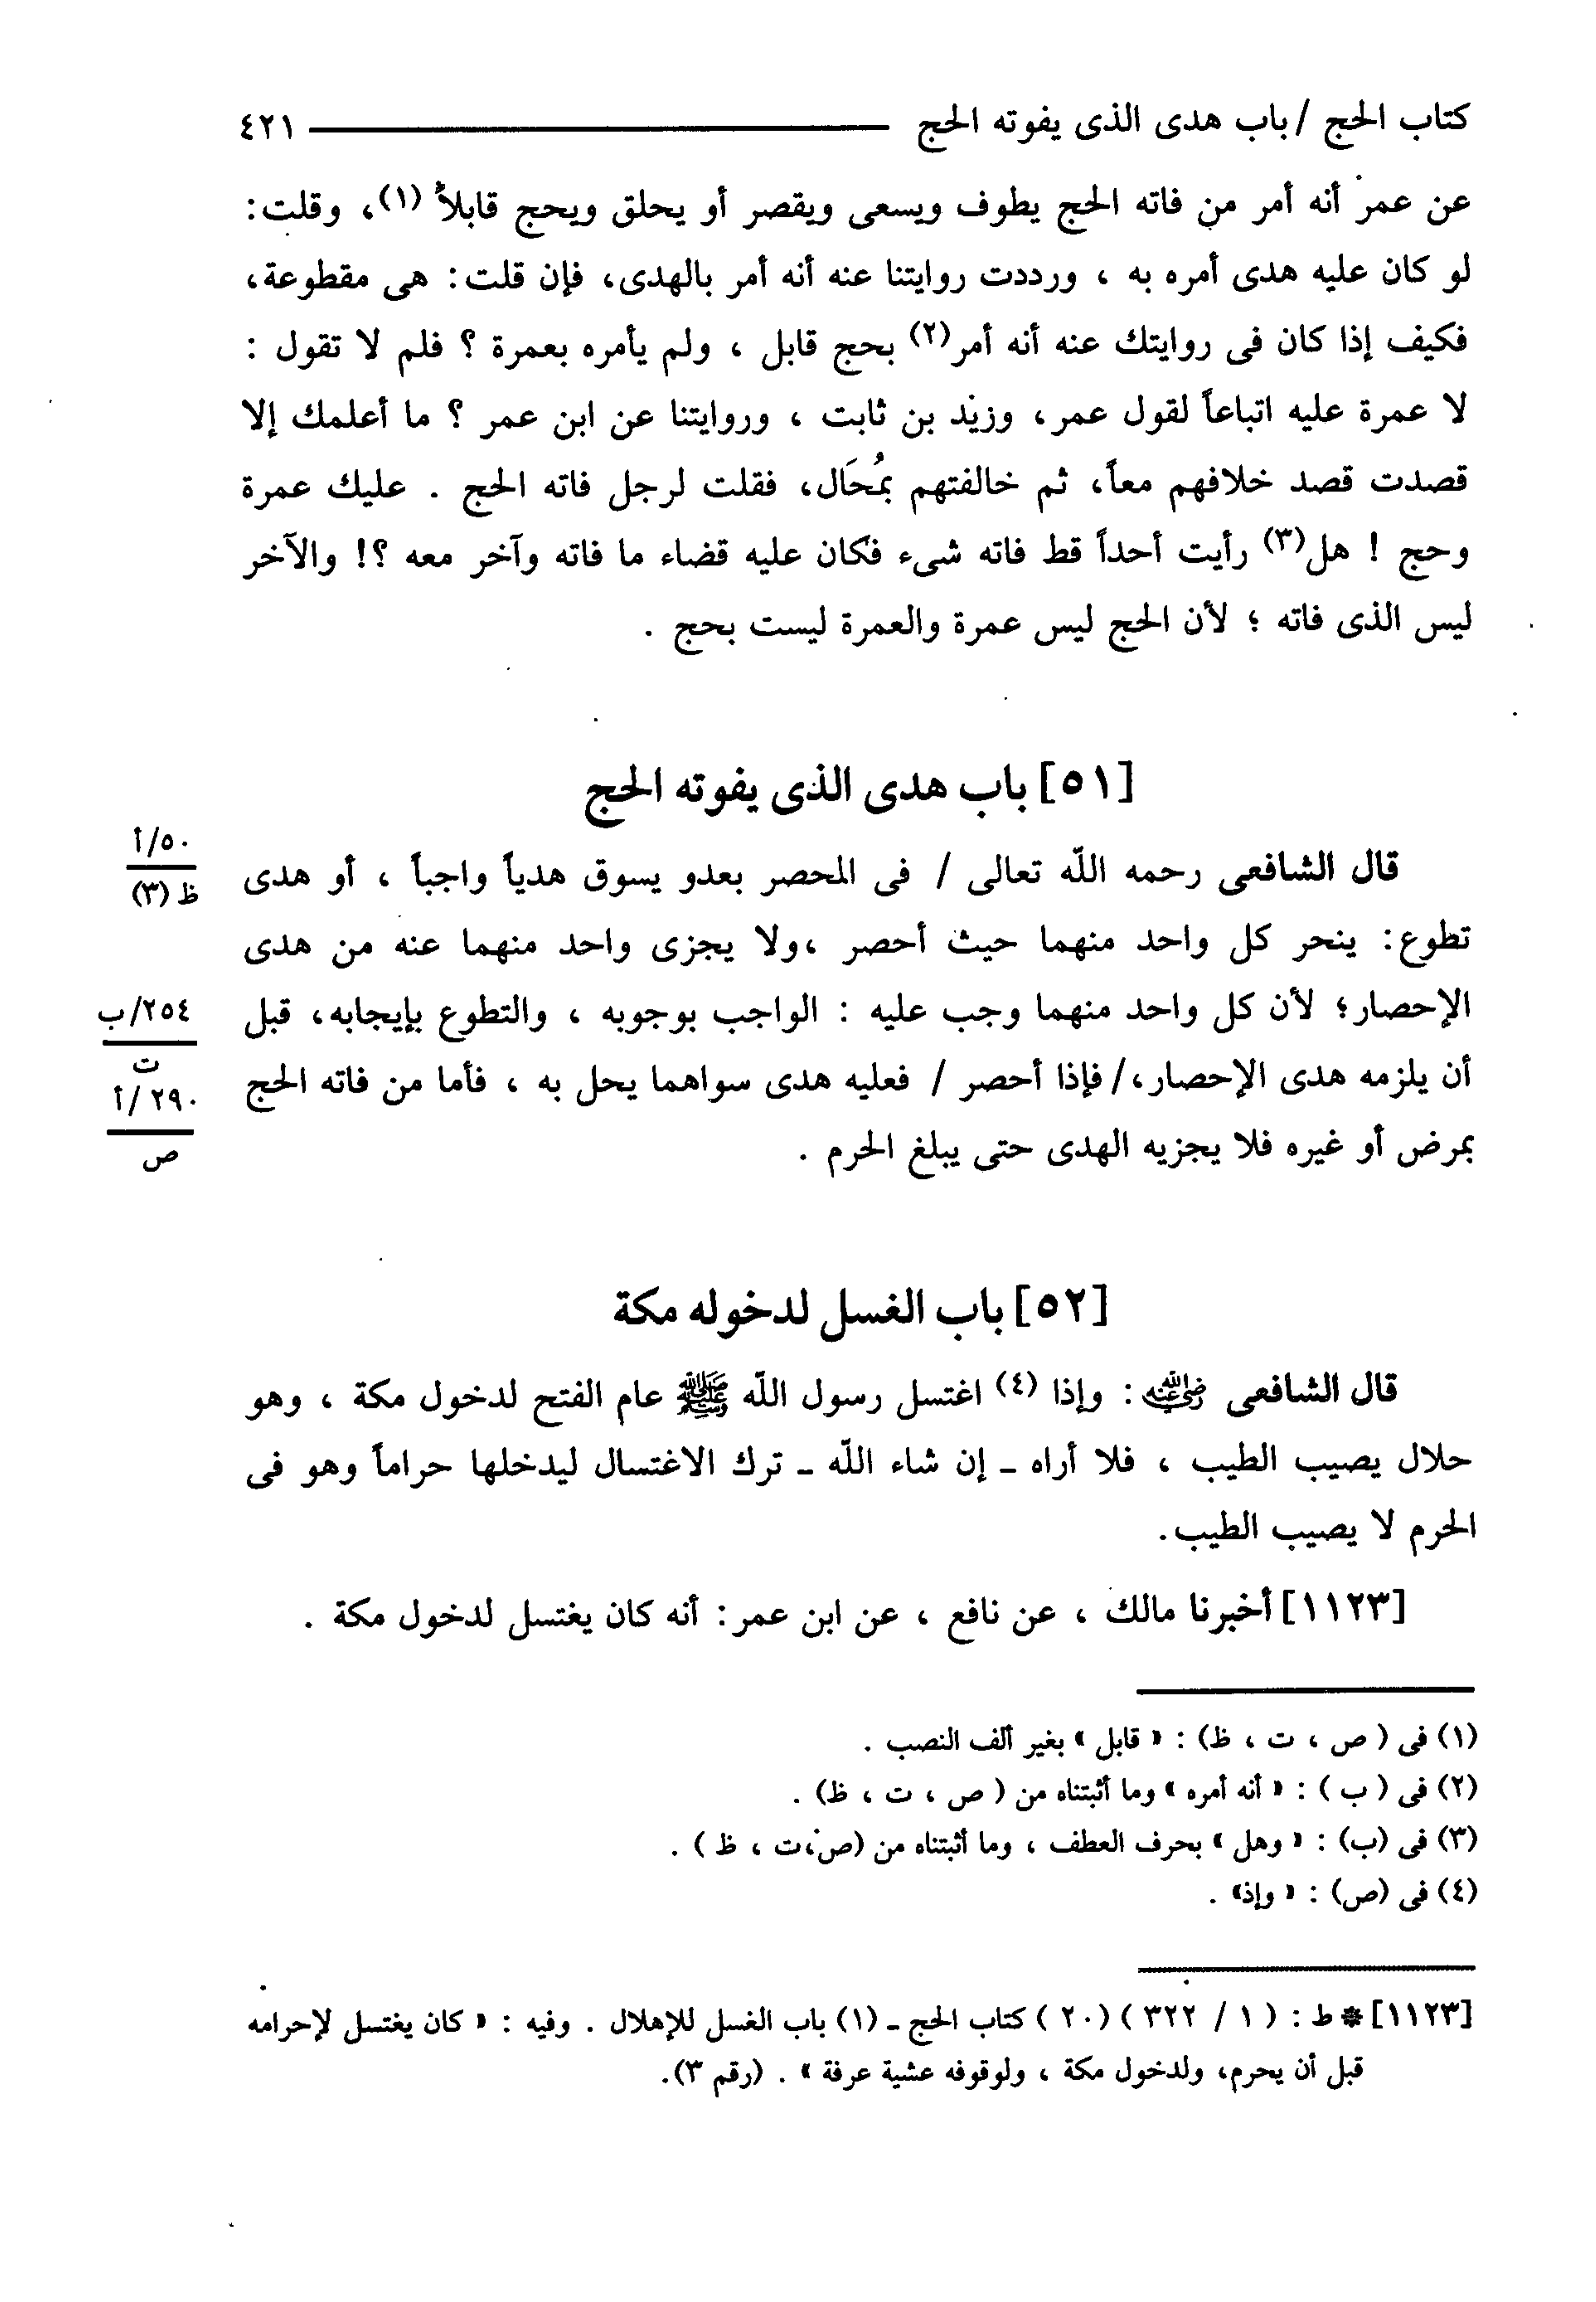 كتاب الحج / باب هدى الذى يفوته الحج ـــــــ ٤٢١
عن عمر أنه أمر من فاته الحج يطوف ويسعى ويقصر أو يحلق ويحج قابلاً (١)، وقلت:
لو كان عليه هدى أمره به ، ورددت روايتنا عنه أنه أمر بالهدى، فإن قلت: هى مقطوعة،
فكيف إذا كان فى روايتك عنه أنه أمر(٢) بحج قابل ، ولم يأمره بعمرة ؟ فلم لا تقول :
لا عمرة عليه اتباعاً لقول عمر، وزيد بن ثابت ، وروايتنا عن ابن عمر ؟ ما أعلمك إلا
قصدت قصد خلافهم معاً، ثم خالفتهم بمُحَال، فقلت لرجل فاته الحج . عليك عمرة
وحج ! هل(٣) رأيت أحداً قط فاته شىء فكان عليه قضاء ما فاته وآخر معه ؟! والآخر
ليس الذى فاته ؛ لأن الحج ليس عمرة والعمرة ليست بحج .
[٥١] باب هدى الذى يفوته الحج
قال الشافعى رحمه اللّه تعالى / فى المحصر بعدو يسوق هدياً واجباً ، أو هدى
٥٠/أ
ظ (٣)
تطوع: ينحر كل واحد منهما حيث أحصر ،ولا يجزى واحد منهما عنه من هدى
الإحصار؛ لأن كل واحد منهما وجب عليه : الواجب بوجوبه ، والتطوع بإيجابه، قبل
٢٥٤/ب
ت
أن يلزمه هدى الإحصار،/ فإذا أحصر / فعليه هدى سواهما يحل به ، فأما من فاته الحج
٢٩٠/أ
ص
بمرض أو غيره فلا يجزيه الهدى حتى يبلغ الحرم .
[٥٢] باب الغسل لدخوله مكة
قال الشافعى رضي الله عنه : وإذا (٤) اغتسل رسول اللّه ﷺ عام الفتح لدخول مكة ، وهو
حلال يصيب الطيب ، فلا أراه ـ إن شاء اللّه ـ ترك الاغتسال ليدخلها حراماً وهو فى
الحرم لا يصيب الطيب.
[١١٢٣] أخبرنا مالك ، عن نافع ، عن ابن عمر: أنه كان يغتسل لدخول مكة .
(١) فى ( ص ، ت ، ظ) : « قابل » بغير ألف النصب .
(٢) فى ( ب ) : « أنه أمره » وما أثبتناه من ( ص ، ت ، ظ) .
(٣) فى (ب) : « وهل » بحرف العطف ، وما أثبتناه من (ص،ت ، ظ ) .
(٤) فى (ص) : « وإذ» .
[١١٢٣] * ط : ( ١ / ٣٢٢ ) (٢٠ ) كتاب الحج ـ (١) باب الغسل للإهلال . وفيه : « كان يغتسل لإحرامه
قبل أن يحرم، ولدخول مكة ، ولوقوفه عشية عرفة » . (رقم ٣).